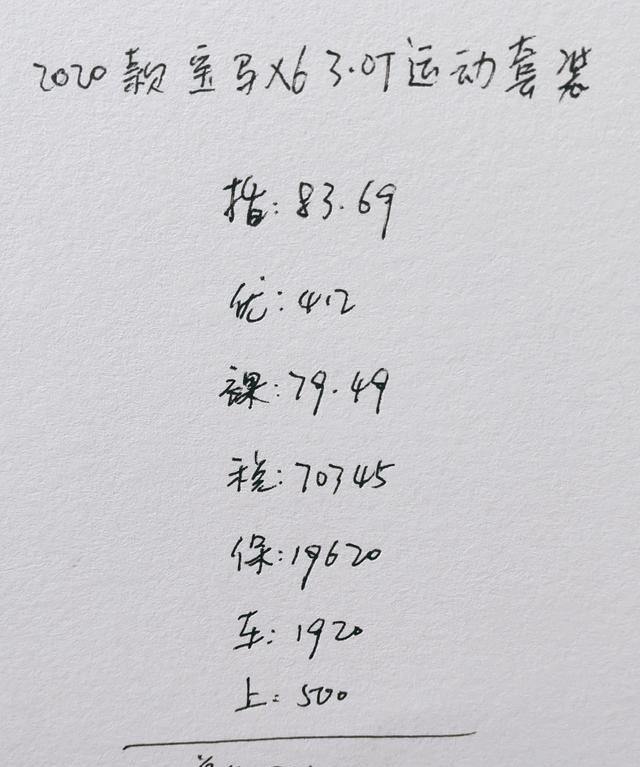 2020款宝马X6 3.0T运动套装
指: 83.69
优: 4.2
裸: 79.49
税: 70345
保: 19620
车: 1920
上: 500